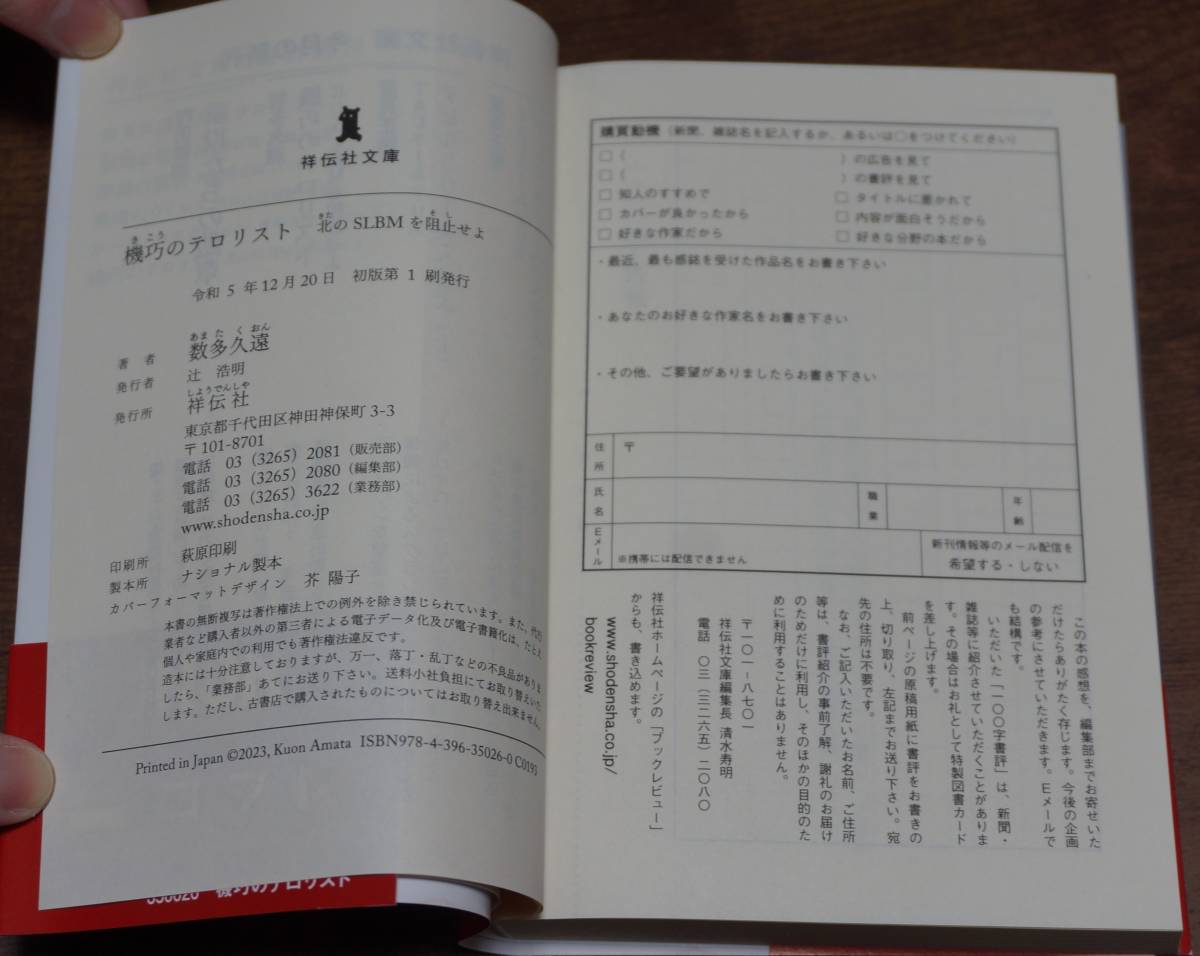 祥伝社文庫
機巧のテロリスト 北のSLBMを阻止せよ
令和5年12月20日 初版第1刷発行
著者 数多久遠
発行者 辻 浩明
発行所 祥伝社
東京都千代田区神田神保町3-3
〒101-8701
電話 03(3265)2081(販売部)
電話 03(3265)2080(編集部)
電話 03(3265)3622(業務部)
www.shodensha.co.jp
印刷所 萩原印刷
製本所 ナショナル製本
カバーフォーマットデザイン 芥 陽子
本書の無断複写は著作権法上での例外を除き禁じられています。また、代行
業者など購入者以外の第三者による電子データ化及び電子書籍化は、たとえ
個人や家庭内での利用でも著作権法違反です。
造本には十分注意しておりますが、万一、落丁・乱丁などの不良品がありま
したら、「業務部」あてにお送り下さい。送料小社負担にてお取り替えいた
します。ただし、古書店で購入されたものについてはお取り替え出来ません。
Printed in Japan ©2023, Kuon Amata ISBN978-4-396-35026-0 C0193
機巧のテロリスト
購買動機(新聞、雑誌名を記入するか、あるいは○をつけてください)
□( )の広告を見て
□( )の書評を見て
□ 知人のすすめで □ タイトルに惹かれて
□ カバーが良かったから □ 内容が面白そうだから
□ 好きな作家だから □ 好きな分野の本だから
・最近、最も感銘を受けた作品名をお書き下さい
・あなたのお好きな作家名をお書き下さい
・その他、ご要望がありましたらお書き下さい
住所 〒
氏名 職業 年齢
Eメール ※携帯には配信できません 新刊情報等のメール配信を
希望する・しない
この本の感想を、編集部までお寄せいた
だけたらありがたく存じます。今後の企画
の参考にさせていただきます。Eメールで
も結構です。
いただいた「一〇〇字書評」は、新聞・
雑誌等に紹介させていただくことがありま
す。その場合はお礼として特製図書カード
を差し上げます。
前ページの原稿用紙に書評をお書きの
上、切り取り、左記までお送り下さい。宛
先の住所は不要です。
なお、ご記入いただいたお名前、ご住所
等は、書評紹介の事前了解、謝礼のお届け
のためだけに利用し、そのほかの目的のた
めに利用することはありません。
〒一〇一-八七〇一
祥伝社文庫編集長 清水寿明
電話 〇三(三二六五)二〇八〇
祥伝社ホームページの「ブックレビュー」
からも、書き込めます。
www.shodensha.co.jp/
bookreview